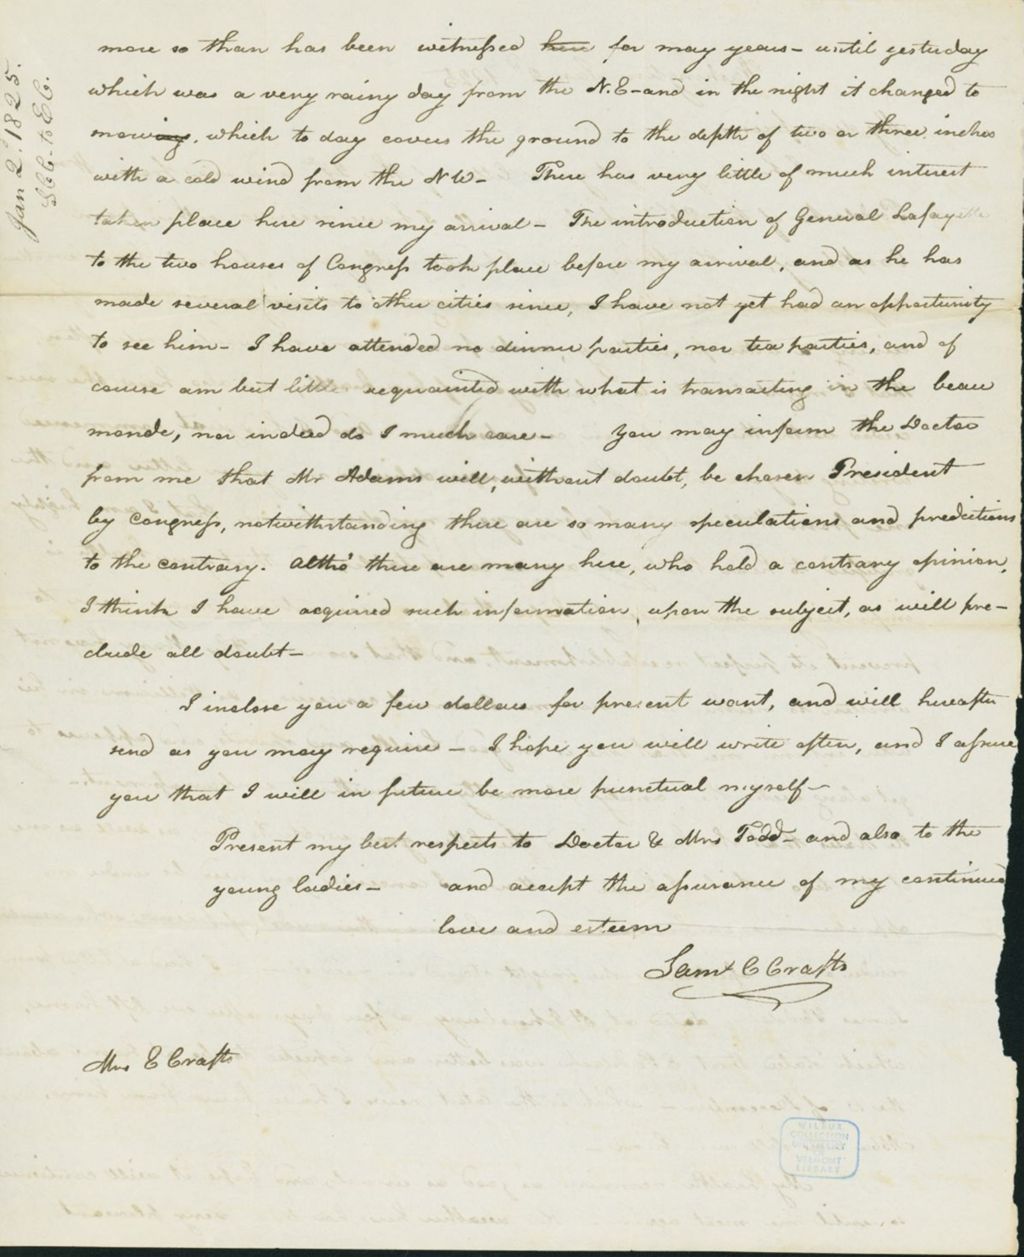 Jan 2. 1825.
SCC. to EC.
more so than has been witnessed here for may years - until yesterday
which was a very rainy day from the N.E - and in the night it changed to
snowing. which to day covers the ground to the depth of two or three inches
with a cold wind from the NW - There has very little of much interest
taken place here since my arrival - The introduction of General Lafayette
to the two houses of Congress took place before my arrival, and as he has
made several visits to other cities since, I have not yet had an opportunity
to see him - I have attended no dinner parties, nor tea parties, and of
course am but little acquainted with what is transacting in the beau
monde, nor indeed do I much care - You may inform the Doctor
from me that Mr Adams will, without doubt, be chosen President
by Congress, notwithstanding there are so many speculations and predictions
to the contrary. Altho' there are many here, who hold a contrary opinion,
I think I have acquired such information, upon the subject, as will pre-
clude all doubt -
I inclose you a few dollars for present want, and will hereafter
send as you may require - I hope you will write often, and I assure
you that I will in future be more punctual myself -
Present my best respects to Doctor & Mrs Todd - and also to the
young ladies - and accept the assurance of my continued
love and esteem
Saml C Crafts
Mrs E Crafts
WILBUR
COLLECTION
UNIVERSITY
OF
VERMONT
LIBRARY